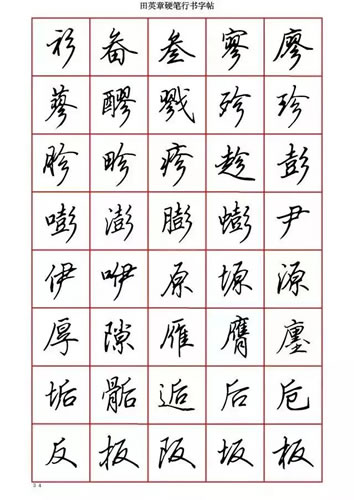 田英章硬笔行书字帖
衫 畚 叁 寥 廖
蓼 醪 戮 殄 珍
胗 畛 疹 趁 彭
嘭 澎 膨 蟛 尹
伊 咿 原 塬 源
厚 隙 雁 膺 廛
垢 骺 逅 后 卮
反 扳 阪 坂 板